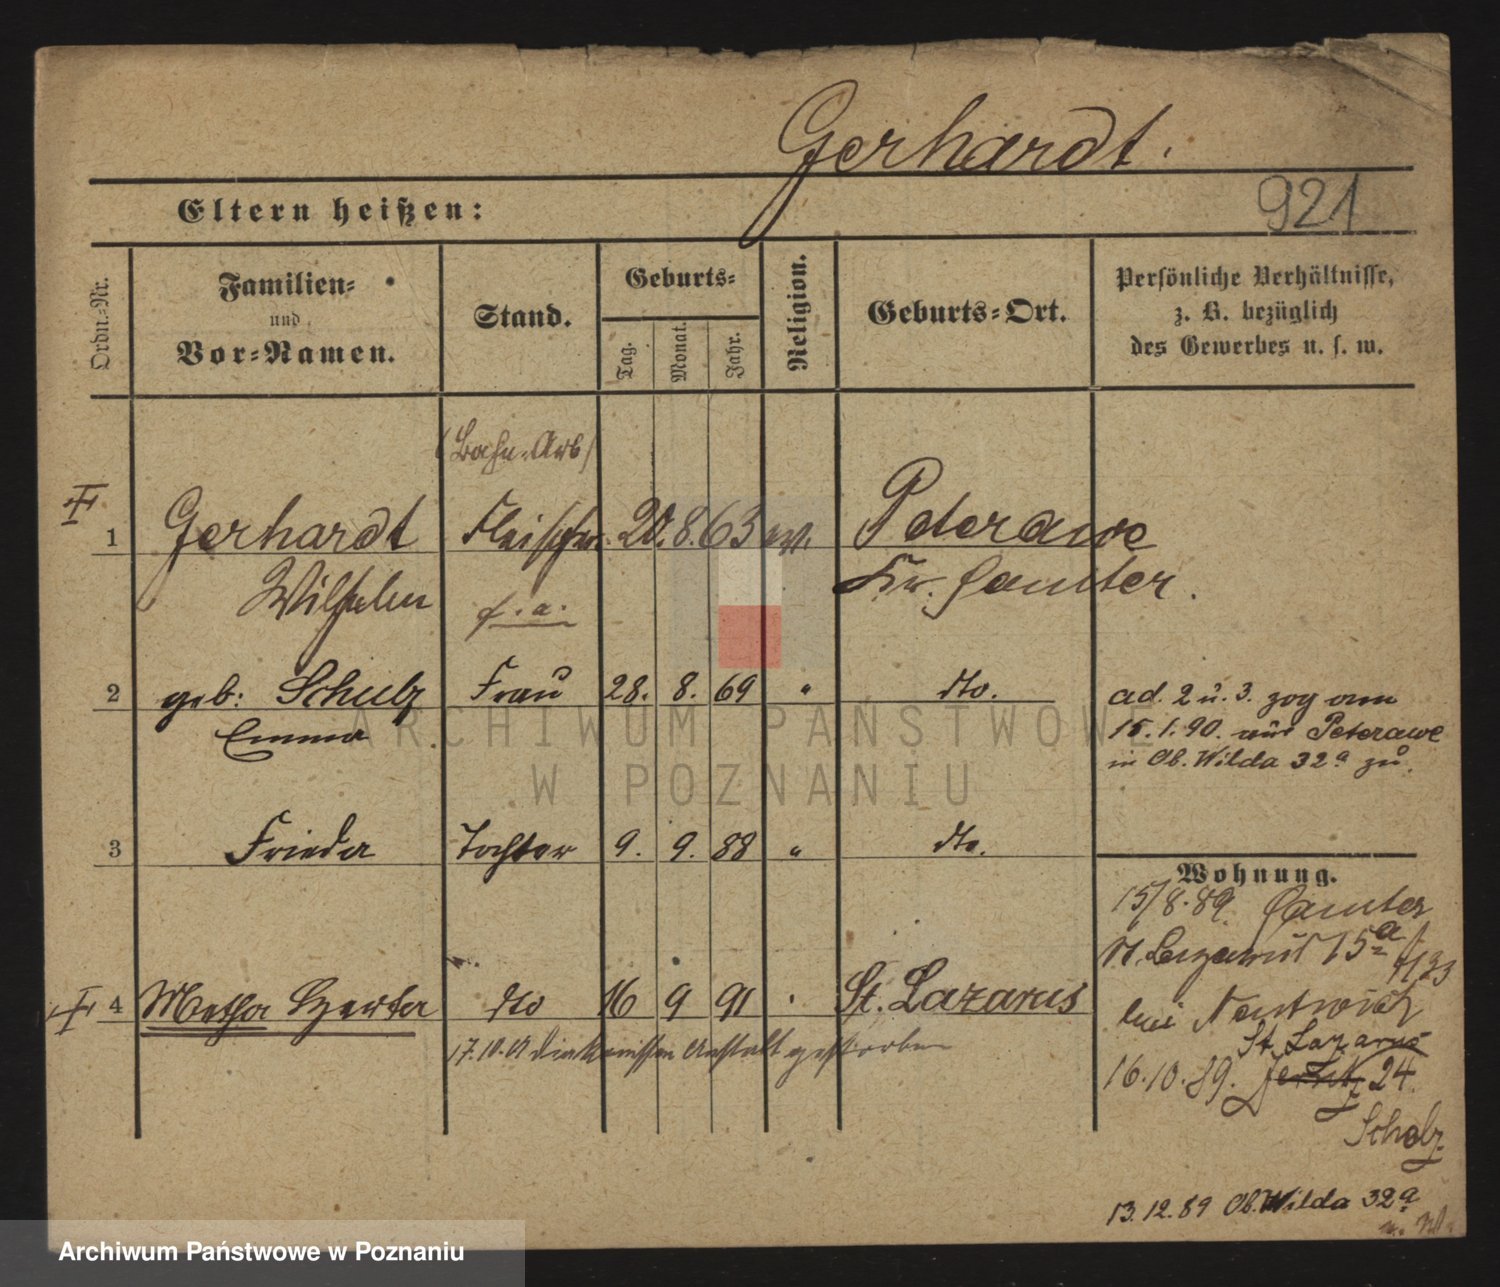 Gerhardt.
921
Eltern heißen:
Ordn.-Nr.
Familien-
und
Vor-Namen.
Stand.
Geburts-
Tag.
Monat.
Jahr.
Religion.
Geburts-Ort.
Persönliche Verhältnisse,
z. B. bezüglich
des Gewerbes u. s. w.
(Bahn-Arb)
1 Gerhardt Fleischer 20. 8. 63 ev. Peterawe
Wilhelm f. a. Kr. Samter.
2 geb: Schulz Frau 28. 8. 69 " dto.
Emma
ad. 2 u. 3. zog am
15. 1. 90. aus Peterawe
in Ob. Wilda 32a zu.
3 Frieda Tochter 9. 9. 88 " dto.
Wohnung.
15/8. 89. Samter
St. Lazarus 15a
4 Martha Herta dto 16 9 91 St. Lazarus
bei Nentwich
17.10.91 Diakonissen Anstalt gestorben
St. Lazarus
16.10.89. Jersitz 24.
Scholz
13.12.89 Ob. Wilda 32a
ARCHIWUM PAŃSTWOWE
W POZNANIU
Archiwum Państwowe w Poznaniu